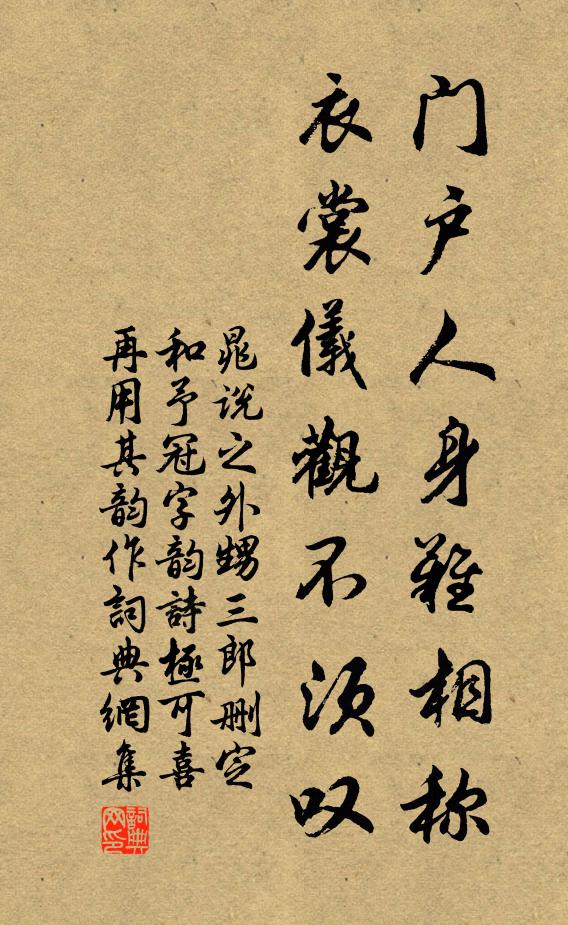 门户人身难相称
衣裳儀觀不须叹
晁说之外甥三郎删定
和予冠字韵詩極可喜
再用其韵作詞典網集
詞典
网印